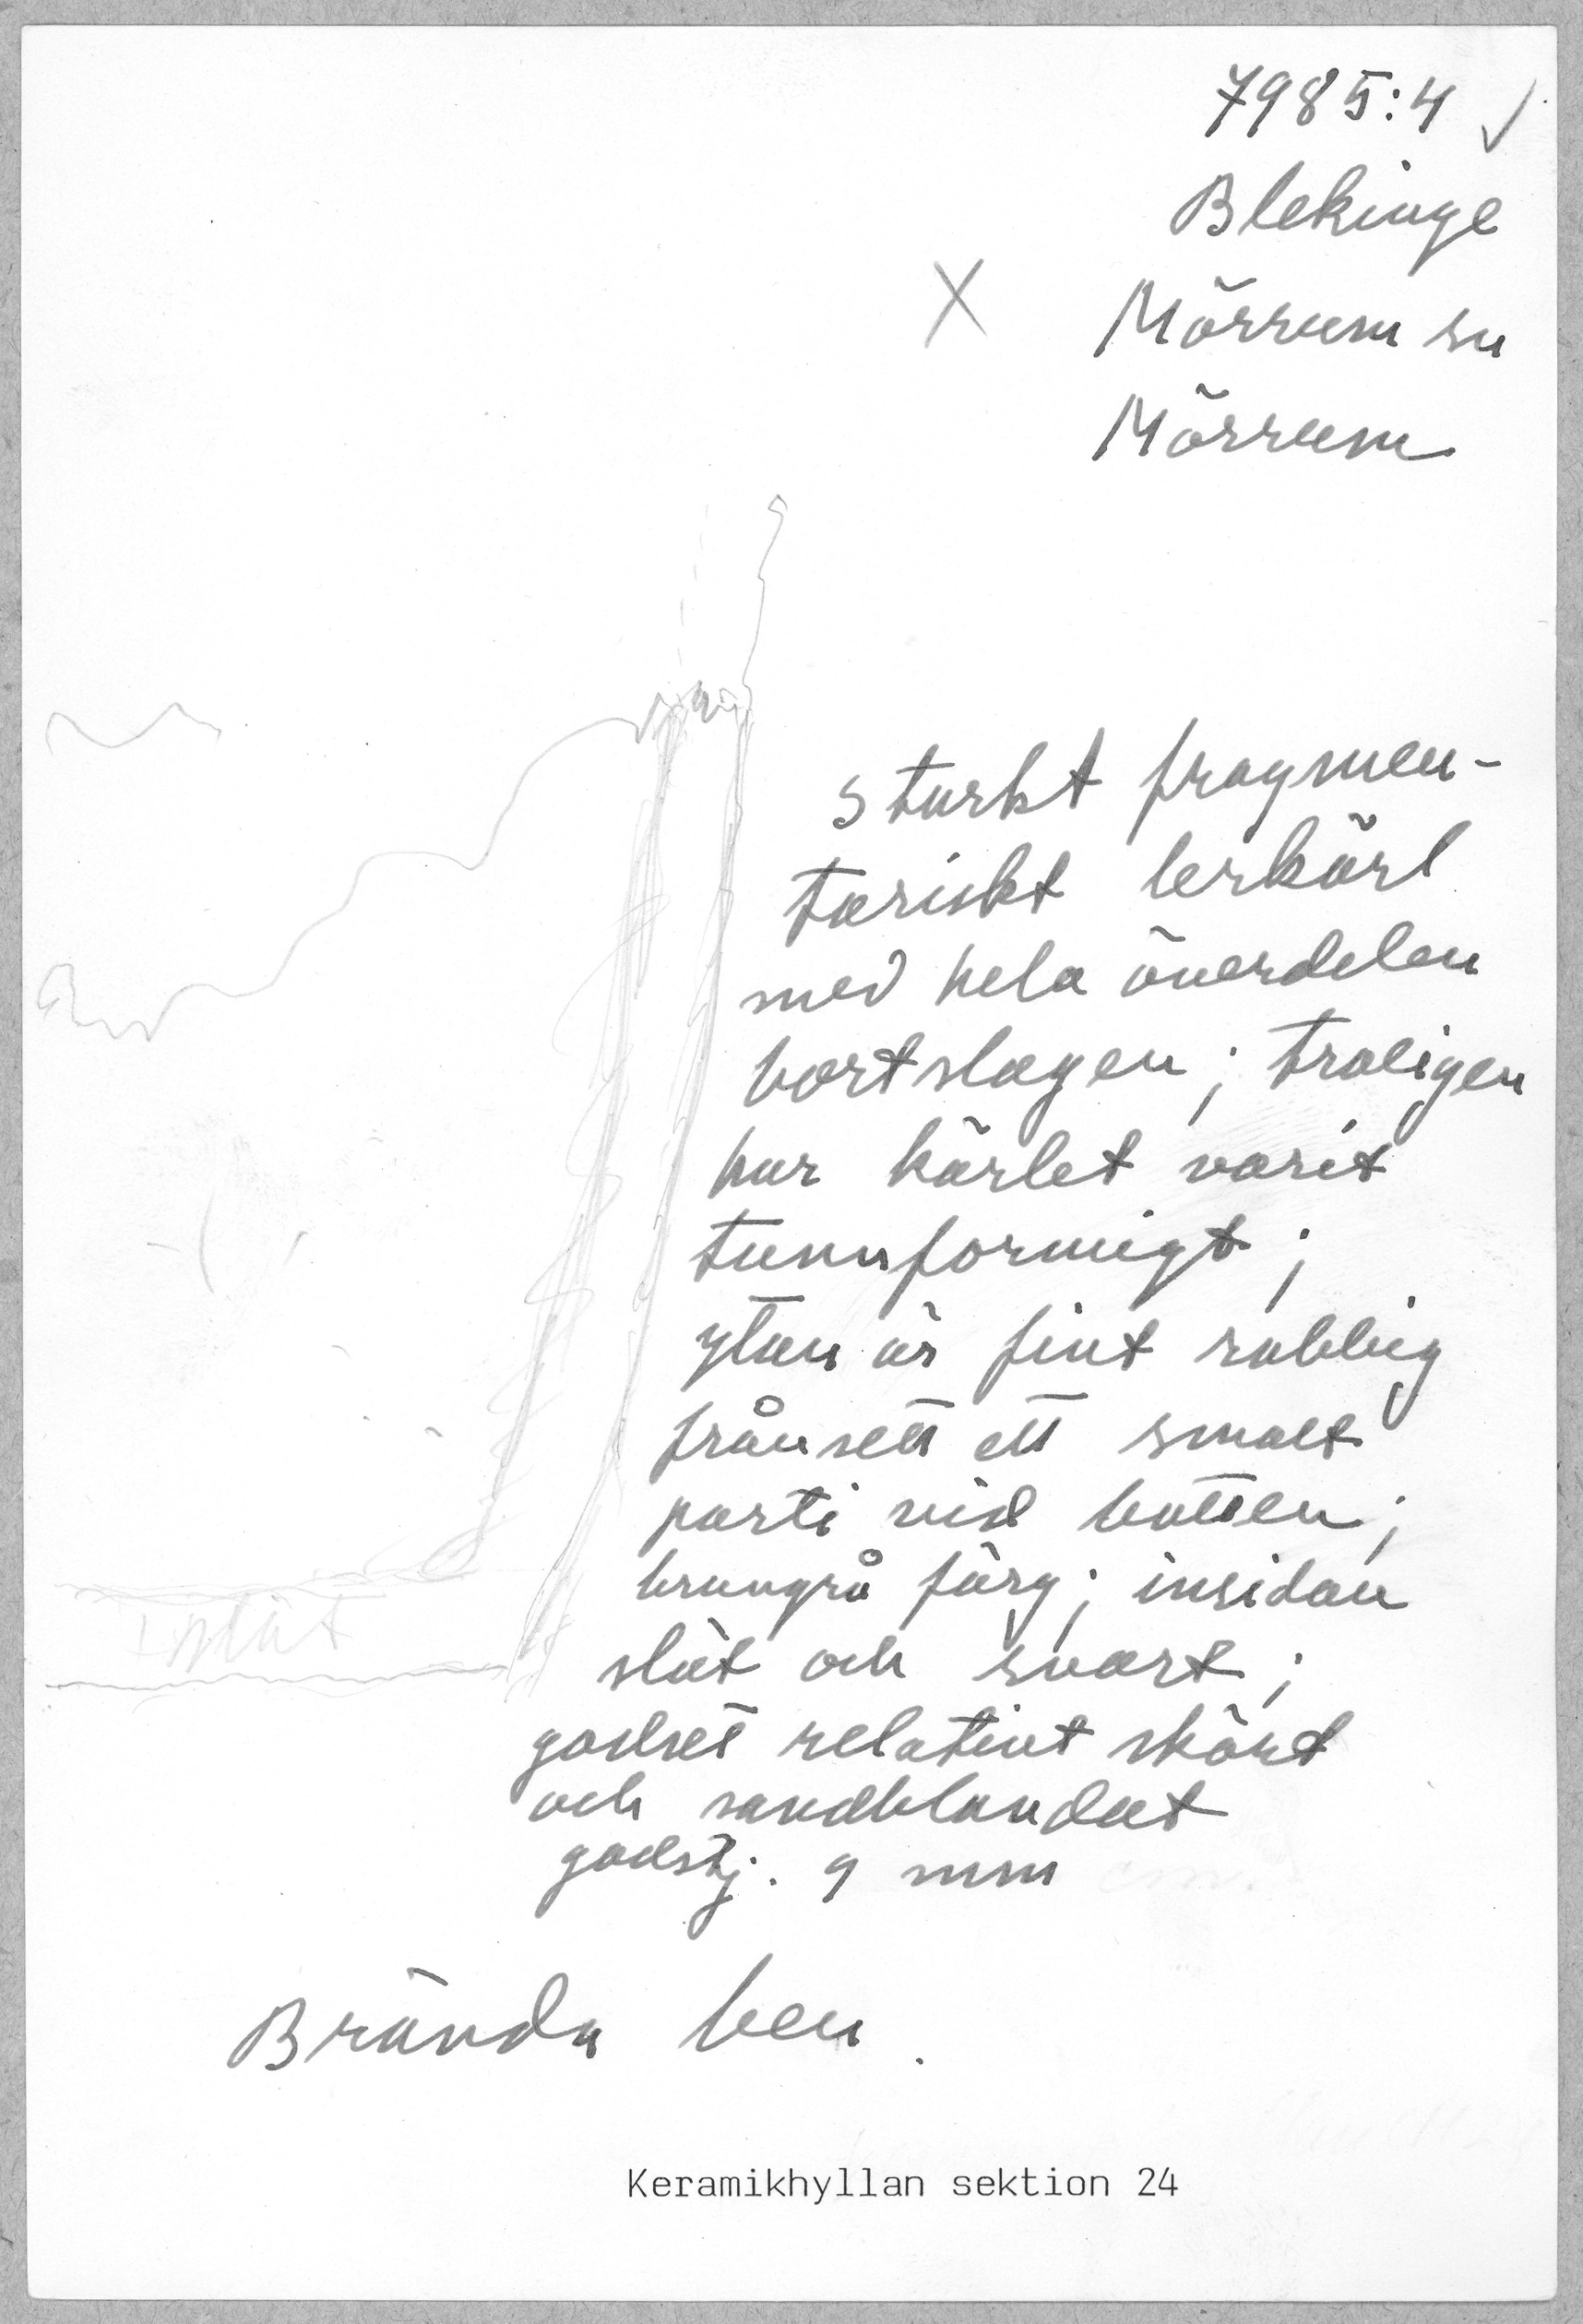 7985:4 ✓
Blekinge
X Mörrum sn
Mörrum
Starkt fragmen-
tariskt lerkärl
med hela överdelen
bortslagen; troligen
har kärlet varit
tunnformigt;
ytan är fint rabbig
frånsett ett smalt
parti vid botten;
brungrå färg; insidan
slät och svart;
godset relativt skört
och sandblandat
godstj. 9 mm cm.
slät
Brända ben.
Keramikhyllan sektion 24